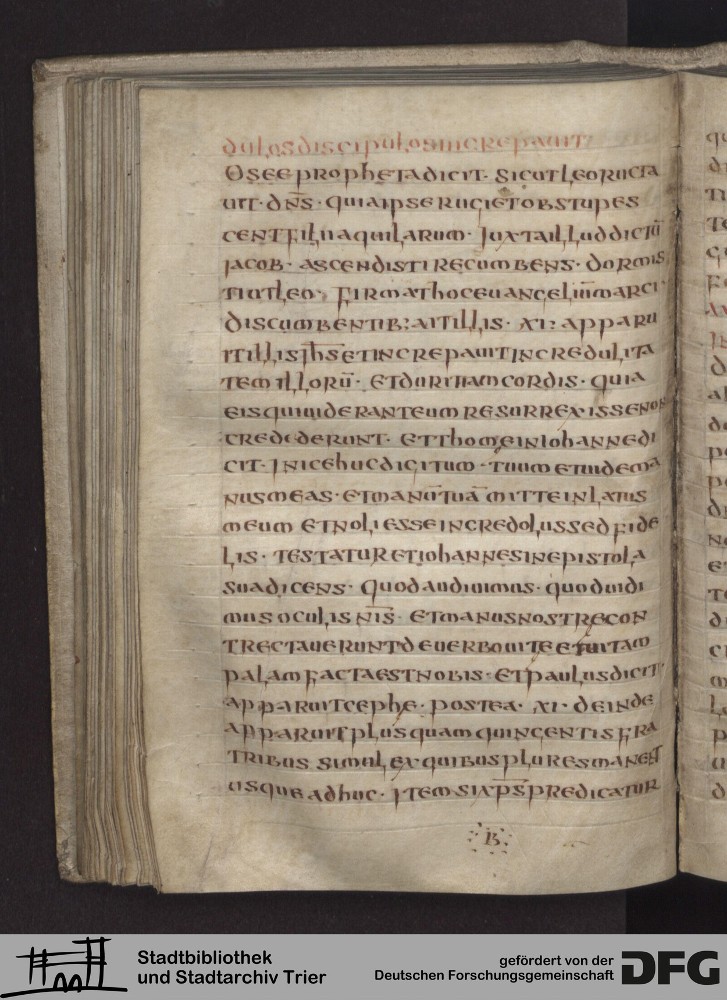 dulos discipulos increpauit
Osee propheta dicit · Sicut leo rugia
uit · dn̄s · quia ipse rugiet obstupes
cent filii aquilarum · Juxta illud dictū
Jacob · ascendisti recumbens · dormis
ti ut leo · firmat hoc euangeliū marci ·
discumbentib: ait illis · xi: apparu
it illis ih̄s et increpauit incredulita
tem illorū · et duritiam cordis · quia
eis qui uiderant eum resurrexisse non
crediderunt · et thome in iohanne di
cit · Inice huc digitum · tuum et uide ma
nus meas · et manū tuā mitte in latus
meum et noli esse incredolus sed fide
lis · testatur et iohannes in epistola
sua dicens · Quod audiuimus · quod uidi
mus oculis nr̄is · et manus nostre con
trectauerunt de uerbo uite et uita
palam facta est nobis · et paulus dicit ·
apparuit cephe · postea · xi · deinde
apparuit plus quam quincentis fra
tribus simul ex quibus plures manent
usque adhuc · Item six ps̄ predicatur
B
Stadtbibliothek
und Stadtarchiv Trier
gefördert von der
Deutschen Forschungsgemeinschaft
DFG